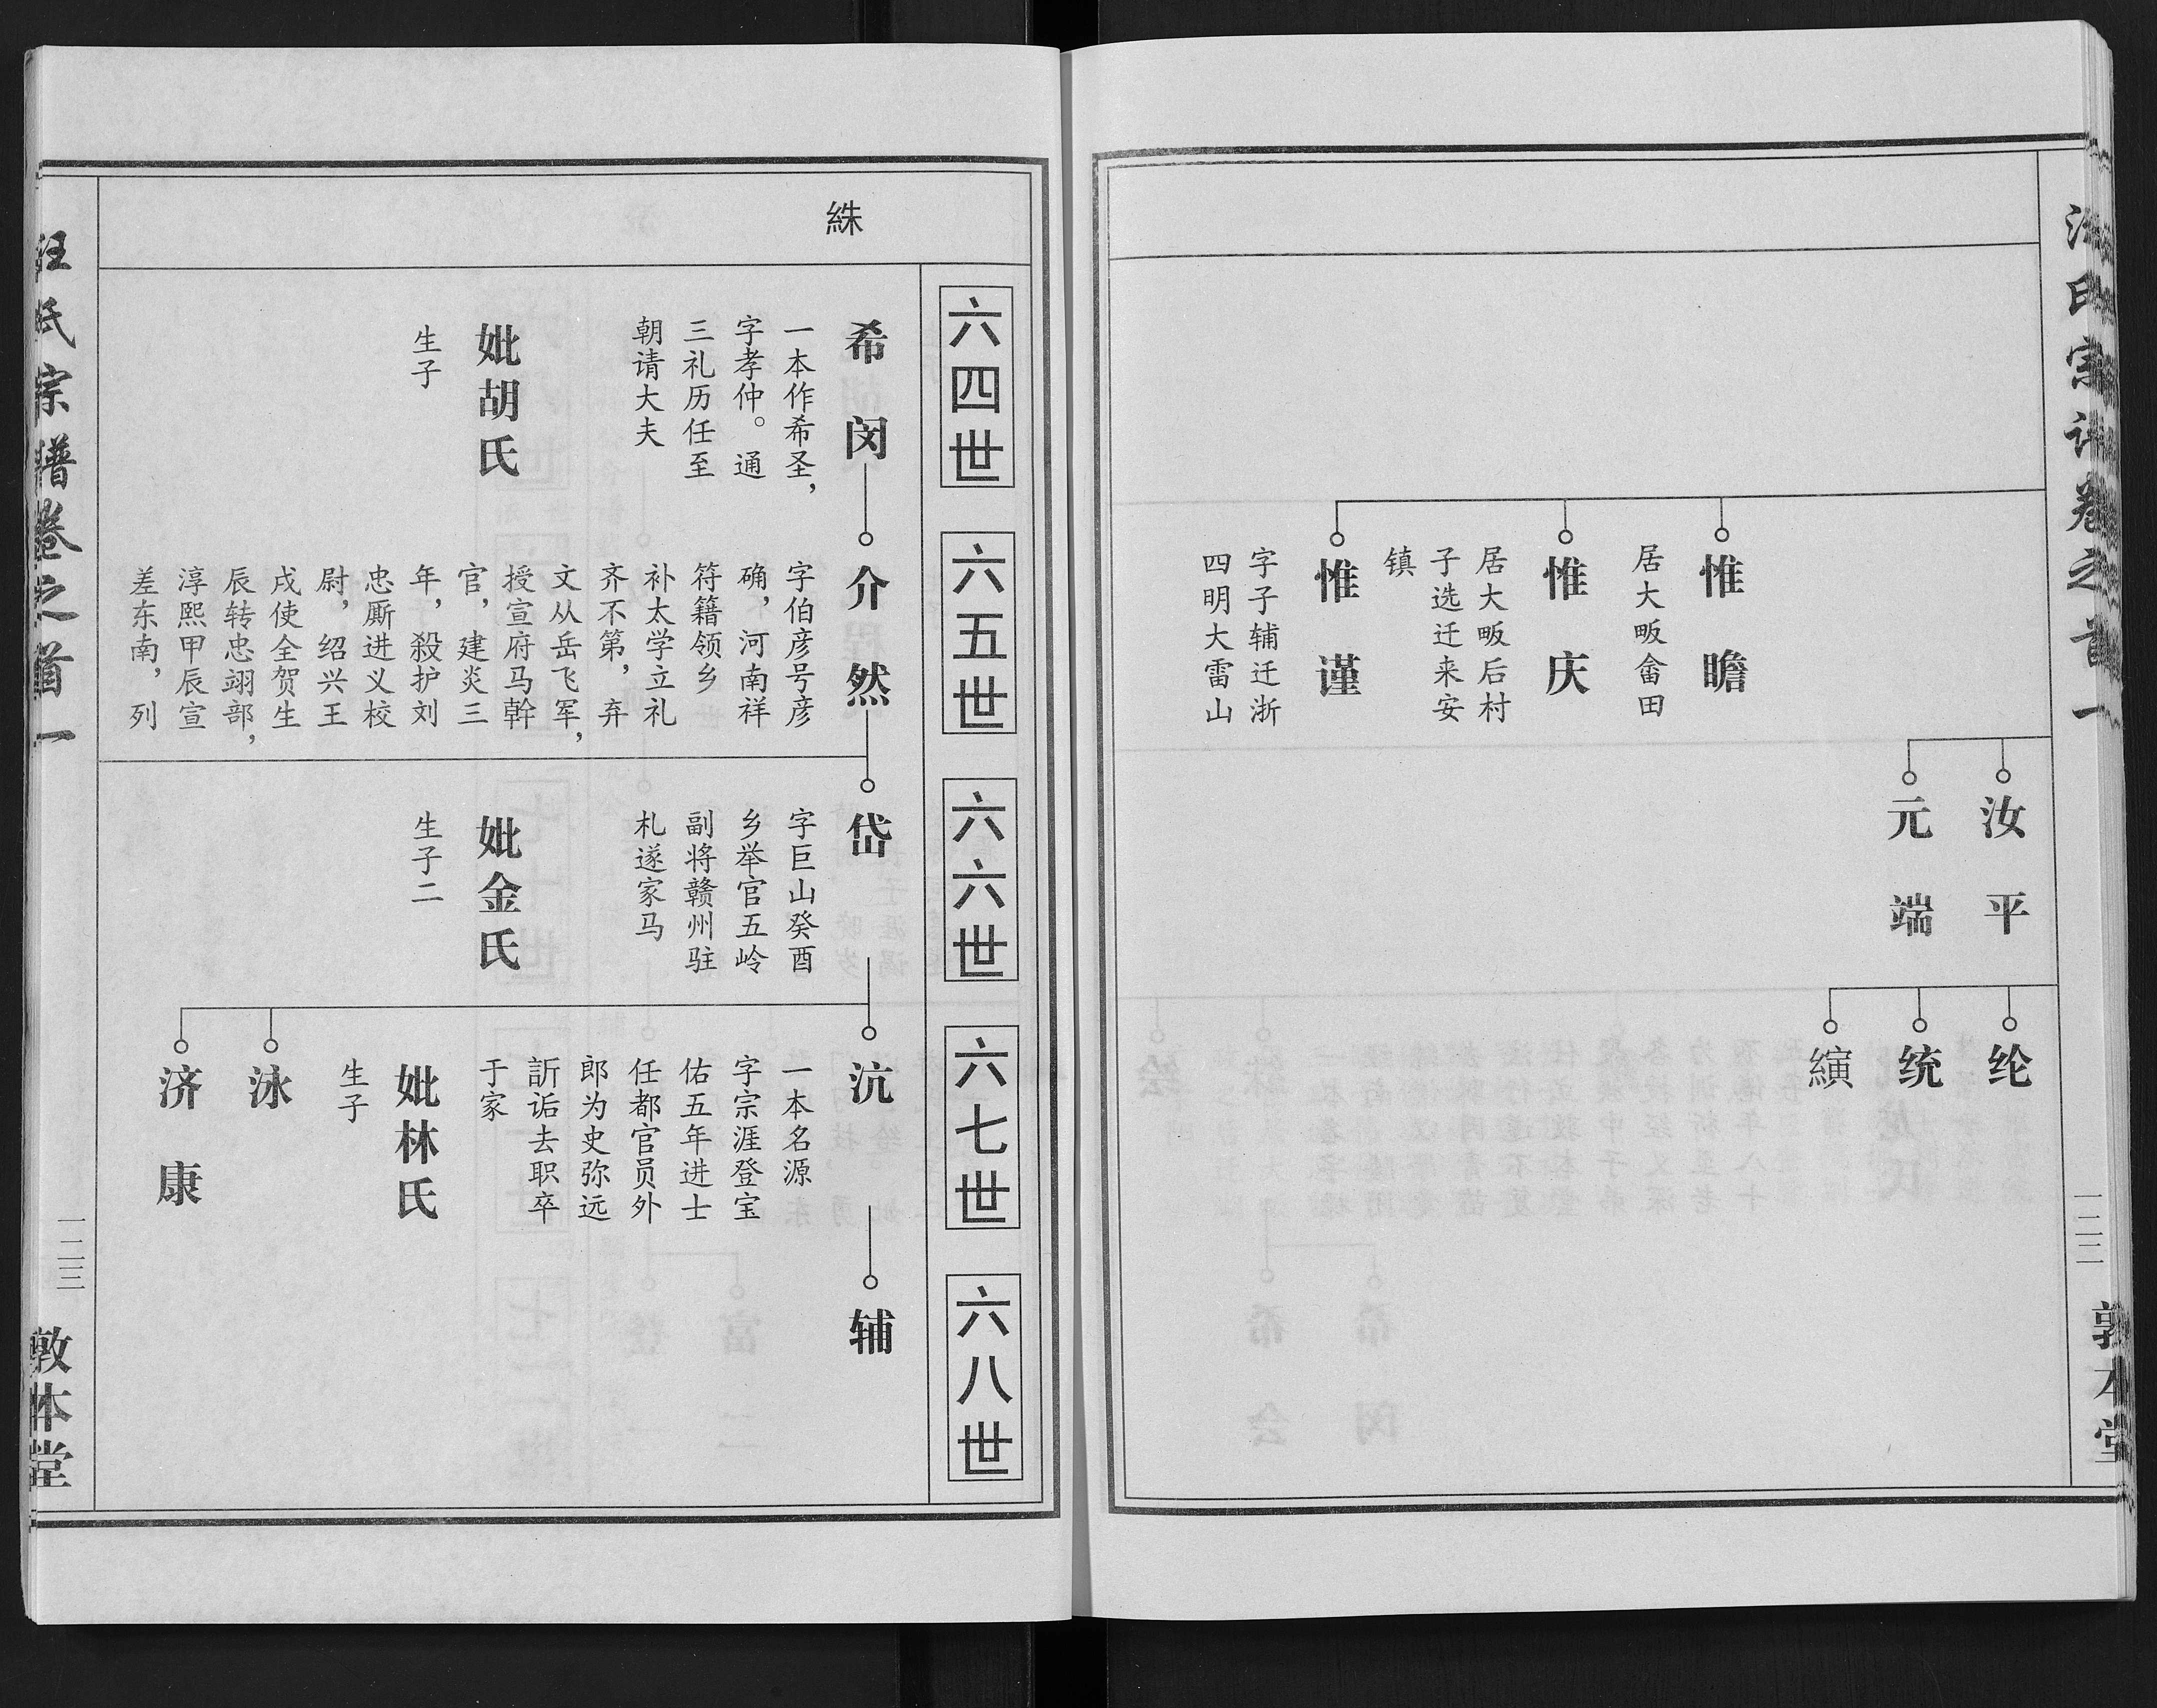 汪氏宗谱卷之首一
一二二
敦本堂
惟瞻
居大畈畲田
惟庆
居大畈后村
子选迁来安
镇
惟谨
字子辅迁浙
四明大雷山
汝平
元端
纶
统
縯
絑
六四世
六五世
六六世
六七世
六八世
希闵
一本作希圣，
字孝仲。通
三礼历任至
朝请大夫
妣胡氏
生子
介然
字伯彦号彦
确，河南祥
符籍领乡
补太学立礼
齐不第，弃
文从岳飞军，
授宣府马幹
官，建炎三
年，殺护刘
忠厮进义校
尉，绍兴王
戌使全贺生
辰转忠翊部，
淳熙甲辰宣
差东南，列
岱
字巨山癸酉
乡举官五岭
副将赣州驻
札遂家马
妣金氏
生子二
沆
一本名源
字宗涯登宝
佑五年进士
任都官员外
郎为史弥远
訢诟去职卒
于家
妣林氏
生子
泳
济康
辅
汪氏宗谱卷之首一
一二三
敦本堂